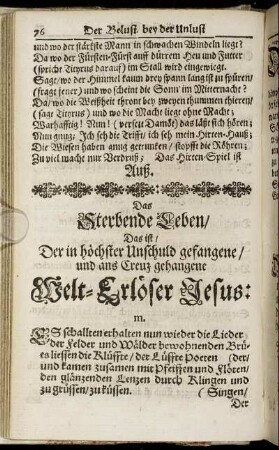 76 Der Belust bey der Unlust
und wo der stärkste Mann in schwachen Windeln liegt?
Da wo der Fürsten-Fürst auff dürrem Heu und Futter
(spricht Tityrus darauf) im Stall wird eingewiegt.
Sage/wo der Himmel kaum drey spann lang ist zu spüren/
(fragt jener) und wo scheint die Sonn im Mitternacht?
Da/wo die Weißheit thront bey zweyen thummen thieren/
(sagt Tityrus) und wo die Macht liegt ohne Macht;
Warhafftig! Nun! (versetzt Damöt) das läßt sich hören;
Nun gnug; Ich seh die Trifft/ ich seh mein Hirten-Hauß;
Die Wiesen haben gnug getrunken/ stopfft die Röhren;
Zu viel macht nur Verdruß; Das Hirten-Spiel ist
Auß.
Das
Sterbende Leben/
Das ist/
Der in höchster Unschuld gefangene/
und ans Creuz gehangene
Welt-Erlöser Jesus:
m.
ES schallten erhalten nun wieder die Lieder
der Felder und Wälder bewohnenden Brü-
es liessen die Klüffte/ der Lüffte Poeten (der/
und kamen zusamen mit Pfeiffen und Flöten/
den glänzenden Lenzen durch Klingen und
zu grüssen/zu küssen. (Singen/
Der